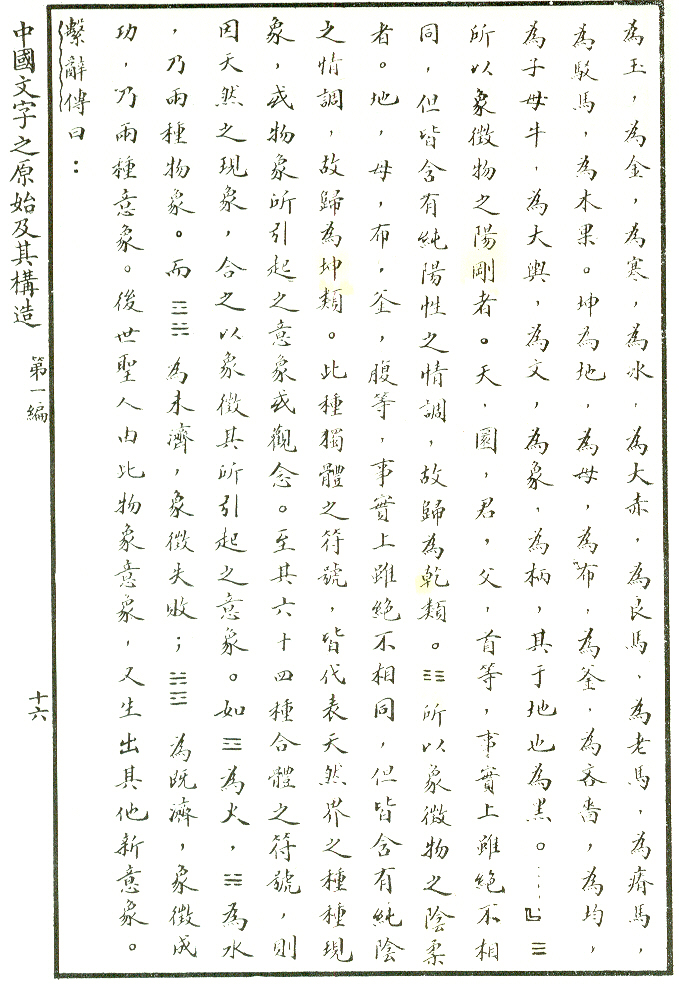 為玉,為金,為寒,為冰,為大赤,為良馬,為老馬,為瘠馬,
為駁馬,為木果。坤為地,為母,為布,為釜,為吝嗇,為均,
為子母牛,為大輿,為文,為象,為柄,其于地也為黑。……』☰
所以象徵物之陽剛者。天,圜,君,父,首等,事實上雖絕不相
同,但皆含有純陽性之情調,故歸為乾類。☷所以象徵物之陰柔
者。地,母,布,釜,腹等,事實上雖絕不相同,但皆含有純陰
之情調,故歸為坤類。此種獨體之符號,皆代表天然界之種種現
象,或物象所引起之意象或觀念。至其六十四種合體之符號,則
因天然之現象,合之以象徵其所引起之意象。如☲為火,☵為水
,乃兩種物象。而☲☵為未濟,象徵失敗;☵☲為既濟,象徵成
功,乃兩種意象。後世聖人由此物象意象,又生出其他新意象。
繫辭傳曰:
中國文字之原始及其構造 第一編 十六